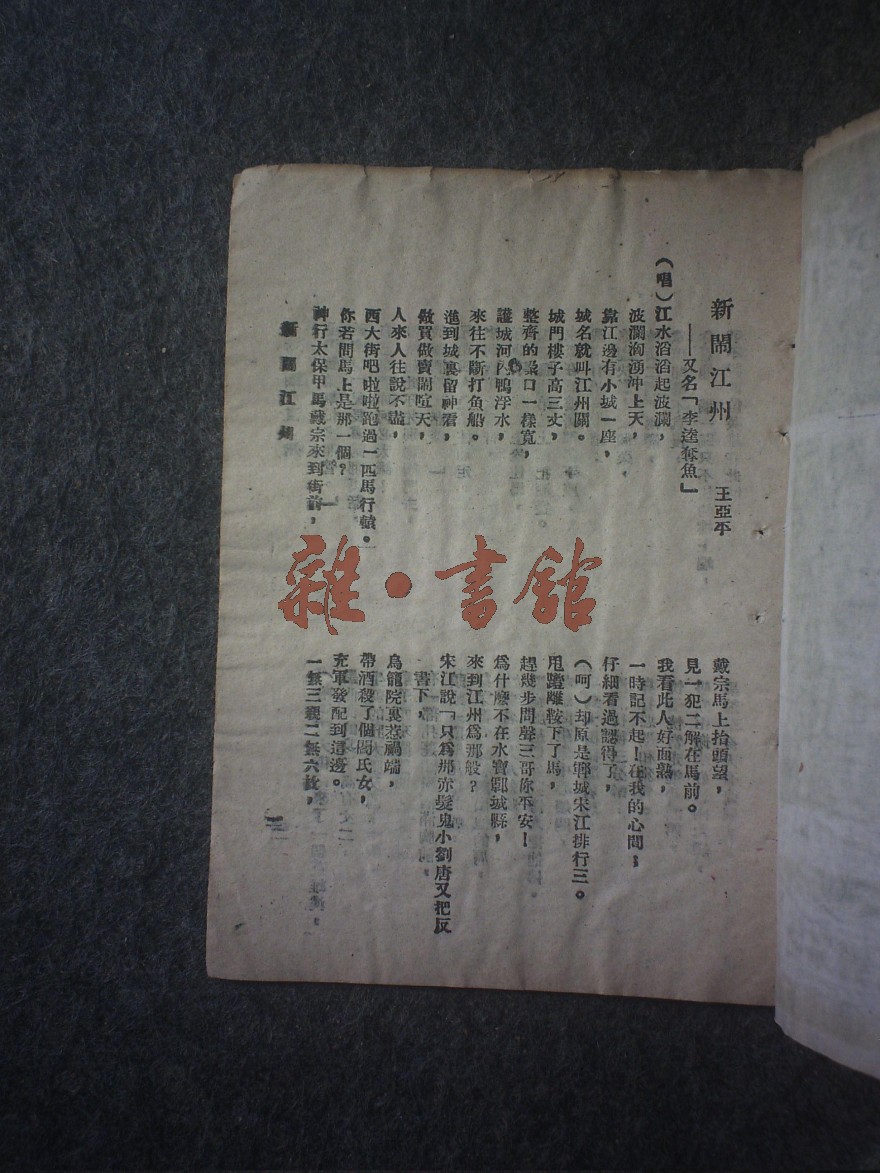 新鬧江州
——又名「李逵奪魚」
王亞平
(唱)江水滔滔起波瀾，
波瀾洶湧沖上天，
靠江邊有小城一座，
城名就叫江州關。
城門樓子高三丈，
整齊的垛口一樣寬，
護城河內鴨浮水，
來往不斷打魚船。
進到城裏留神看，
做買做賣鬧喧天，
人來人往說不盡，
西大街吧啦啦跑過一匹馬行轅。
你若問馬上是那一個？
神行太保甲馬戴宗來到街前，
戴宗馬上抬頭望，
見一犯二解在馬前。
我看此人好面熱，
一時記不起！在我的心間；
仔細看過認得了，
(呵)却原是鄆城宋江排行三。
甩蹬離鞍下了馬，
趕幾步問聲三哥你平安！
為什麼不在水寶鄆城縣，
來到江州為那般？
宋江說「只為那赤髮鬼小劉唐又把反
書下，
烏龍院裏惹禍端，
帶酒殺了個閻氏女，
充軍發配到這邊。
一無三親二無六故，
新鬧江州
雜·書館